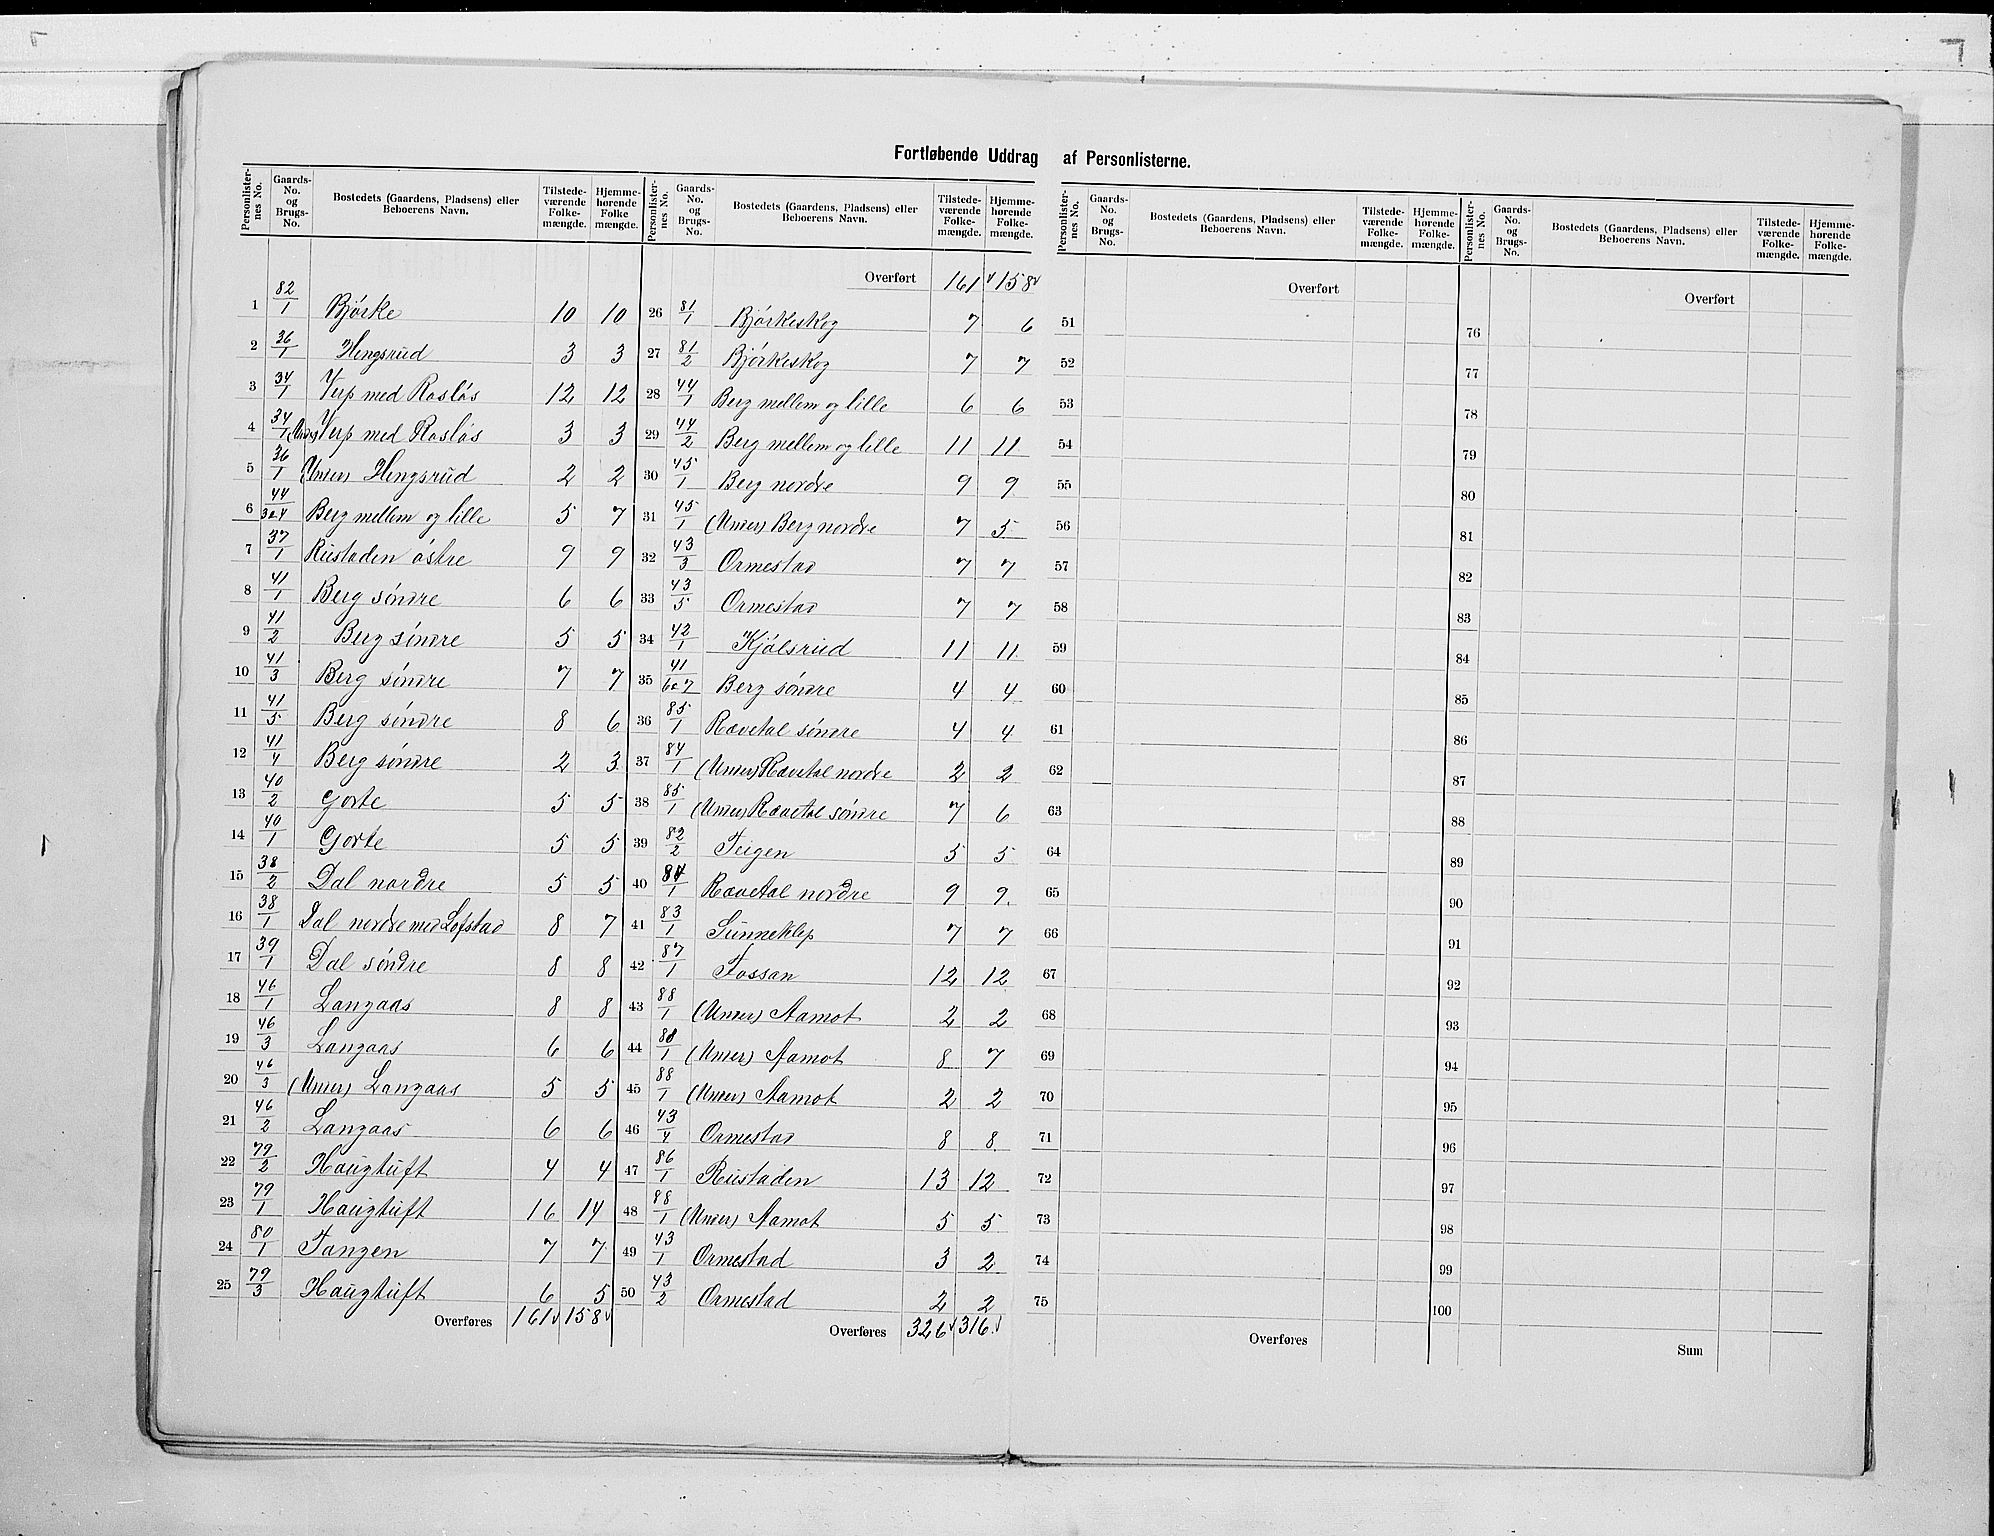 Fortløbende Uddrag af Personlisterne.
Personlister-nes No. | Gaards-No. og Brugs-No. | Bostedets (Gaardens, Pladsens) eller Beboerens Navn. | Tilstede-værende Folke-mængde. | Hjemme-hørende Folke mængde.
1 82/1 Bjørke 10 10
2 36/1 Hengsrud 3 3
3 34/1 Verp med Rosløs 12 12
4 34/1 (Under) Verp med Rosløs 3 3
5 36/1 (Under) Hengsrud 2 2
6 44/3a4 Berg mellem og lille 5 7
7 37/1 Rustaden østre 9 9
8 41/1 Berg søndre 6 6
9 41/2 Berg søndre 5 5
10 41/3 Berg søndre 7 7
11 41/5 Berg søndre 8 6
12 41/4 Berg søndre 2 3
13 40/2 Gorte 5 5
14 40/1 Gorte 5 5
15 38/2 Dal nordre 5 5
16 38/1 Dal nordre med Lofstad 8 7
17 39/1 Dal søndre 8 8
18 46/1 Langaas 8 8
19 46/3 Langaas 6 6
20 46/3 (Under) Langaas 5 5
21 46/2 Langaas 6 6
22 79/2 Haugtuft 4 4
23 79/1 Haugtuft 16 14
24 80/1 Tangen 7 7
25 79/3 Haugtuft 6 5
Overføres 161 158
Personlister-nes No. | Gaards-No. og Brugs-No. | Bostedets (Gaardens, Pladsens) eller Beboerens Navn. | Tilstede-værende Folke-mængde. | Hjemme-hørende Folke-mængde.
Overført 161 158
26 81/1 Bjørkeskog 7 6
27 81/2 Bjørkeskog 7 7
28 44/1 Berg mellem og lille 6 6
29 44/2 Berg mellem og lille 11 11
30 45/1 Berg nordre 9 9
31 45/1 (Under) Berg nordre 7 5
32 43/3 Ormestad 7 7
33 43/5 Ormestad 7 7
34 42/1 Kjølsrud 11 11
35 41/6a7 Berg søndre 4 4
36 85/1 Rævetal søndre 4 4
37 84/1 (Under) Rævetal nordre 2 2
38 85/1 (Under) Rævetal søndre 7 6
39 82/2 Teigen 5 5
40 84/1 Rævetal nordre 9 9
41 83/1 Sunneklep 7 7
42 87/1 Fossan 12 12
43 88/1 (Under) Aamot 2 2
44 88/1 (Under) Aamot 8 7
45 88/1 (Under) Aamot 2 2
46 43/4 Ormestad 8 8
47 86/1 Rustaden 13 12
48 88/1 (Under) Aamot 5 5
49 43/1 Ormestad 3 2
50 43/2 Ormestad 2 2
Overføres 326 316
Personlister-nes No. | Gaards-No. og Brugs-No. | Bostedets (Gaardens, Pladsens) eller Beboerens Navn. | Tilstede-værende Folke-mængde. | Hjemme-hørende Folke-mængde.
Overført
51
52
53
54
55
56
57
58
59
60
61
62
63
64
65
66
67
68
69
70
71
72
73
74
75
Overføres
Personlister-nes No. | Gaards-No. og Brugs-No. | Bostedets (Gaardens, Pladsens) eller Beboerens Navn. | Tilstede-værende Folke-mængde. | Hjemme-hørende Folke-mængde.
Overført
76
77
78
79
80
81
82
83
84
85
86
87
88
89
90
91
92
93
94
95
96
97
98
99
100
Sum